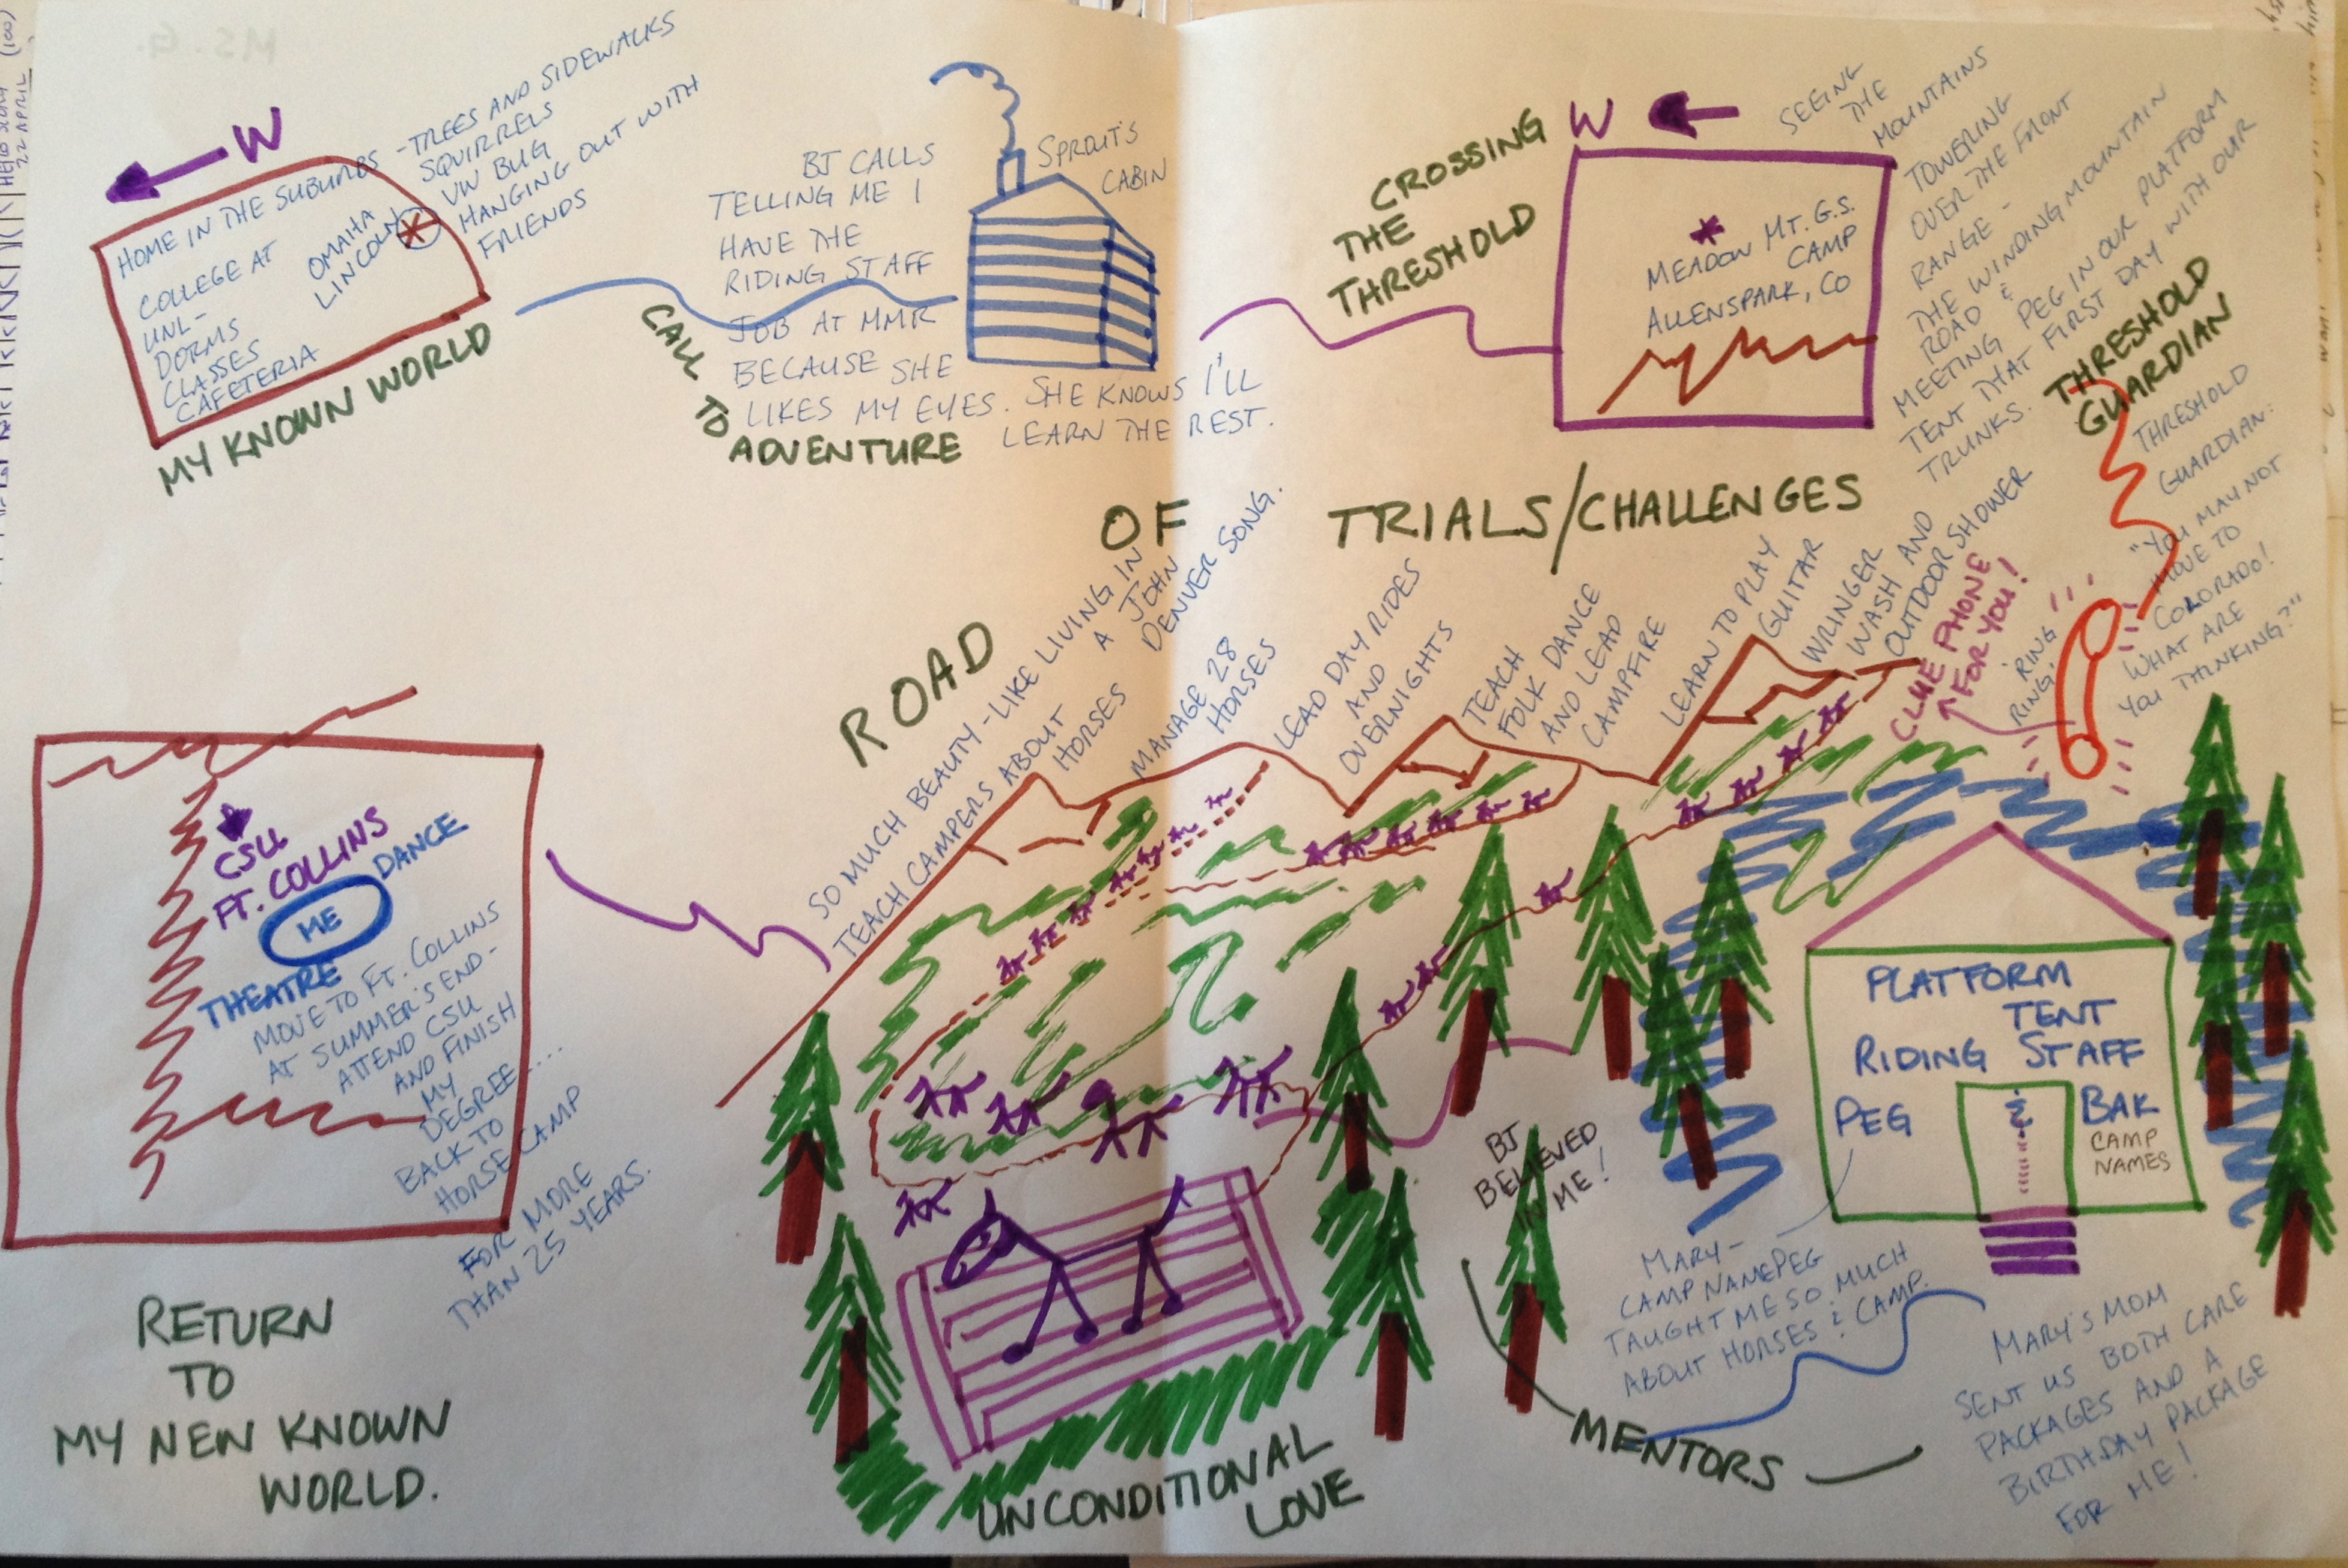 M S. G.
(100
22 APRIL
W
HOME IN THE SUBURBS
COLLEGE AT
UNL-
DORMS
CLASSES
CAFETERIA
OMAHA
LINCOLN
-TREES AND SIDEWALKS
SQUIRRELS
VW BUG
HANGING OUT WITH
FRIENDS
MY KNOWN WORLD
CALL
TO
ADVENTURE
BJ CALLS
TELLING ME I
HAVE THE
RIDING STAFF
JOB AT MMR
BECAUSE SHE
LIKES MY EYES. SHE KNOWS I'LL
LEARN THE REST.
SPROUT'S
CABIN
CROSSING
THE
THRESHOLD
W
MEADOW MT. G.S.
CAMP
ALLENSPARK, CO
SEEING
THE
MOUNTAINS
TOWERING
OVER THE FRONT
RANGE -
THE WINDING MOUNTAIN
ROAD &
MEETING PEG IN OUR PLATFORM
TENT THAT FIRST DAY WITH OUR
TRUNKS.
THRESHOLD
GUARDIAN
THRESHOLD
GUARDIAN:
"YOU MAY NOT
MOVE TO
COLORADO!
WHAT ARE
YOU THINKING?"
RING
RING!
CLUE PHONE
FOR YOU!
ROAD
OF
TRIALS/CHALLENGES
SO MUCH BEAUTY - LIKE LIVING IN
A JOHN
DENVER SONG.
TEACH CAMPERS ABOUT
HORSES
MANAGE 28
HORSES
LEAD DAY RIDES
AND
OVERNIGHTS
TEACH
FOLK DANCE
AND LEAD
CAMPFIRE
LEARN TO PLAY
GUITAR
WRINGER
WASH AND
OUTDOOR SHOWER
PLATFORM
TENT
RIDING STAFF
PEG & BAK
CAMP
NAMES
BJ
BELIEVED
IN ME!
MARY-
CAMP NAME PEG
TAUGHT ME SO MUCH
ABOUT HORSES & CAMP.
MENTORS
MARY'S MOM
SENT US BOTH CARE
PACKAGES AND A
BIRTHDAY PACKAGE
FOR ME!
UNCONDITIONAL
LOVE
CSU
FT. COLLINS
DANCE
ME
THEATRE
MOVE TO FT. COLLINS
AT SUMMER'S END-
ATTEND CSU
AND FINISH
MY
DEGREE....
BACK TO
HORSE CAMP
FOR MORE
THAN 25 YEARS.
RETURN
TO
MY NEW KNOWN
WORLD.